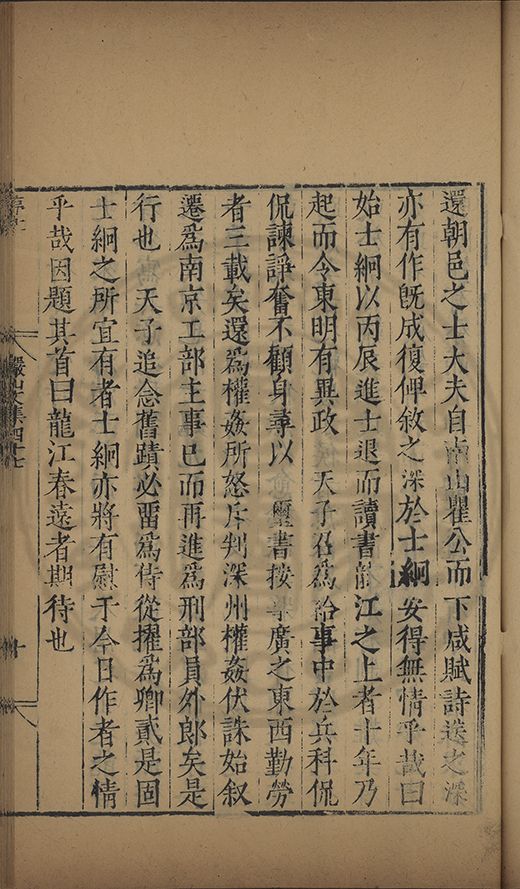 還朝邑之士大夫自南山瞿公而下咸賦詩送之深
亦有作旣成復俾敘之深於士絅安得無情乎哉曰
始士絅以丙辰進士退而讀書龍江之上者十年乃
起而令東明有異政　天子召爲給事中於兵科侃
侃諫諍奮不顧身尋以　璽書按廣之東西勤勞
者三載矣還爲權姦所怒斥判深州權姦伏誅始叙
遷爲南京工部主事已而再進爲刑部員外郎矣是
行也　天子追念舊蹟必留爲侍從擢爲卿貳是固
士絅之所宜有者士絅亦將有慰于今日作者之情
乎哉因題其首曰龍江春遠者期待也
儼山文集四十七
十